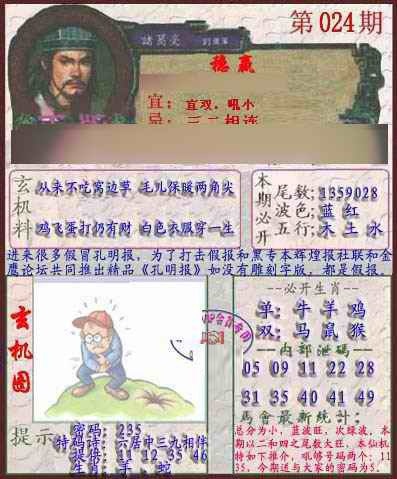 第024期
諸葛亮
穩贏
宜：宜双，吼小
忌：三二相连
玄机料
从来不吃窝边草 毛儿保暖两角尖
鸡飞蛋打仍有财 白色衣服穿一生
本期必开
尾数:1359028
波色:蓝 红
五行:木 土 水
进来很多假冒孔明报，为了打击假报和黑专本辉煌报社联和金
鹰论坛共同推出精品《孔明报》如没有雕刻字版，都是假报。
玄机图
--必开生肖--
单:牛 羊 鸡
双:马 鼠 猴
--内部泄码--
05 09 11 22 28
31 35 40 41 49
馬會最新統計:
总分为小，蓝波旺，次绿波，本
期以二和四之尾数大旺，本仙机
特如下推介，吼够号码两个：11
35，今期送与大家的密码为5.
提示
密码：235
特码诗：六居中三九相伴
提供：11 12 35 46
生肖：羊 蛇